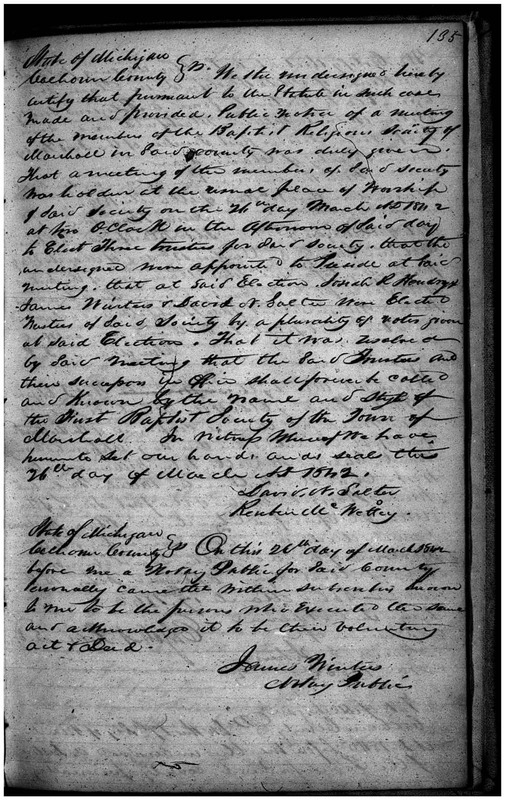 135
State of Michigan
Calhoun County } ss. We the undersigned hereby
certify that pursuant to the Statute in such case
made and provided. Public notice of a meeting
of the members of the Baptist Religious Society of
Marshall in said county was duly given.
That a meeting of the members of said society
was holden at the usual place of Worship
of said society on the 26th day March AD 1842
at two O Clock in the Afternoon of said day
to Elect Three trustees for said society. that the
undersigned were appointed to Preside at said
meeting. that at said Election Josiah R
James Winters & David N. Salter were Elected
Trustees of said Society by a plurality of votes given
at said Election. That it was resolved
by said meeting that the said Trustees and
their successors in office shall forever be called
and Known by the name and style of
the First Baptist Society of the Town of
Marshall In Witness Whereof We have
hereunto set our hands and seals this
26th day of March AD 1842.
David N. Salter
Reuben Mc
State of Michigan
Calhoun County } ss On this 26th day of March 1842
before me a Notary Public for said County
personally came the within subscribers known
to me to be the persons who Executed the same
and acknowledged it to be their voluntary
act & Deed.
James Winters
Notary Public